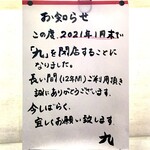 お知らせ
この度、2021年1月末で
「九」を閉店することに
なりました。
長い間(12年間)ご利用頂き
誠にありがとうございます。
今しばらく、
宜しくお願い致します。
九